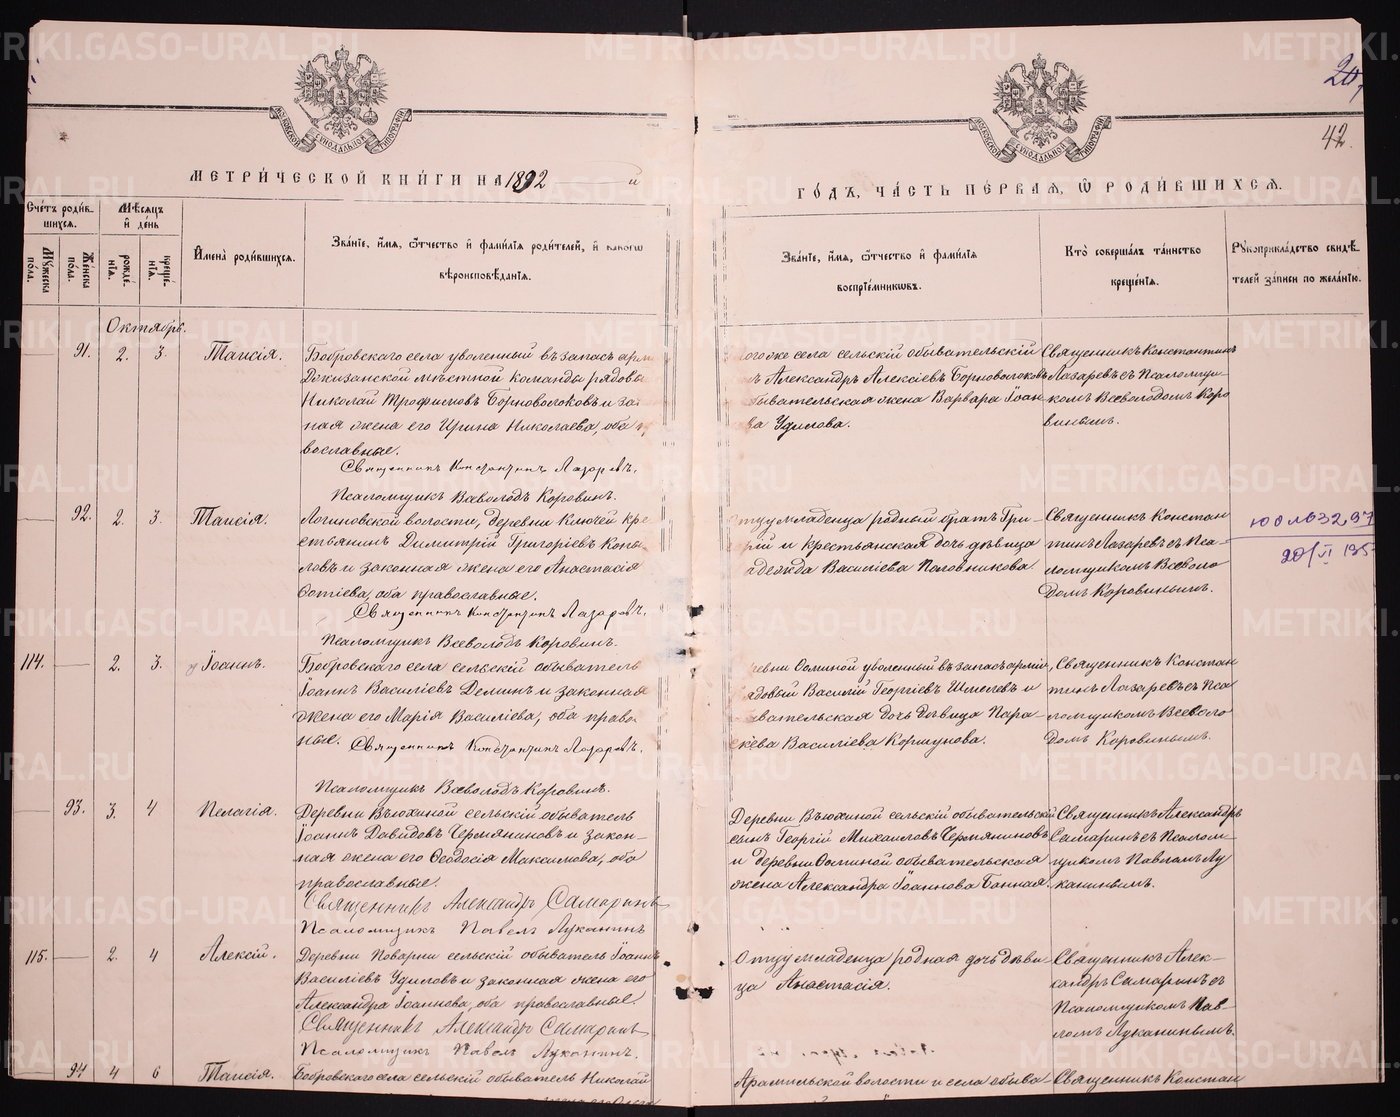 METRIKI.GASO-URAL.RU
20
42.
МОСКОВСКОЙ СѴНОДАЛЬНОЙ ТИПОГРАФІИ
МОСКОВСКОЙ СѴНОДАЛЬНОЙ ТИПОГРАФІИ
МЕТРИ́ЧЕСКОЙ КНИ́ГИ НА 1892
ГО́ДЪ, ЧА́СТЬ ПЕ́РВАЯ, Ѽ РОДИ́ВШИХСЯ.
Сче́тъ роди́вшихся.
Мѣ́сяцъ и҆ де́нь
Му́жеска по́ла.
Же́нска по́ла.
рожде́нїѧ.
креще́нїѧ.
И҆мена̀ роди́вшихся.
Зва́нїе, и҆́мя, ѻ҆́тчество и҆ фами́лїѧ роди́телей, и҆ како́гѡ
вѣроисповѣ́данїѧ.
Зва́нїе, и҆́мя, ѻ҆́тчество и҆ фами́лїѧ
воспрїе́мникѡвъ.
Кто̀ соверша́лъ та́инство
креще́нїѧ.
Рꙋкоприкла́дство свидѣ́-
телей за́писи по жела́нїю.
Октябрь.
91. 2. 3. Таисія.
Бобровскаго села уволенный въ запасъ арм
Джизакской мѣстной команды рядовы
Николай Трофимовъ Черноволоковъ и за
ная жена его Ирина Николаева, оба п
вославные.
Священникъ Константинъ Лазаревъ.
Псаломщикъ Всеволодъ Коровинъ.
тогоже села сельскій обывательскій
Александръ Алексіевъ Черноволоковъ
бывательская жена Варвара Іоан
ва Удилова.
Священникъ Константинъ
Лазаревъ съ Псаломщи-
комъ Всеволодомъ Коро
винымъ.
92. 2. 3. Таисія.
Логиновской волости, деревни Ключей кре
стьянинъ Димитрій Григоріевъ Копы
ловъ и законная жена его Анастасія
Фотіева, оба православные.
Священникъ Константинъ Лазаревъ.
Псаломщикъ Всеволодъ Коровинъ.
отцу младенца родный братъ Гри-
рій и крестьянская дочь дѣвица
адежда Василіева Половникова.
Священникъ Констан
тинъ Лазаревъ съ Пса-
ломщикомъ Всеволо
домъ Коровинымъ.
114. 2. 3. Іоаннъ.
Бобровскаго села сельскій обыватель
Іоаннъ Василіевъ Деминъ и законная
жена его Марія Василіева, оба право
ные. Священникъ Константинъ Лазаревъ.
Псаломщикъ Всеволодъ Коровинъ.
ревни Фоминой уволенный въ запасъ арміи,
ядовый Василій Георгіевъ Шмелевъ и
вательская дочь дѣвица Пара-
скева Василіева Коршунова.
Священникъ Констан
тинъ Лазаревъ съ Пса
ломщикомъ Всеволо
домъ Коровинымъ.
93. 3. 4 Пелагія.
Деревни Вьюхиной сельскій обыватель
Іоаннъ Давидовъ Чермяниновъ и закон-
ная жена его Ѳеодосія Максимова, оба
православные.
Священникъ Александръ Самаринъ
Псаломщикъ Павелъ Луканинъ
Деревни Вьюхиной сельскій обывательскій
сынъ Георгій Михаиловъ Чермяниновъ
и деревни Фоминой обывательская
жена Александра Іоаннова Банная.
Священникъ Александръ
Самаринъ съ Псалом-
щикомъ Павломъ Лу
канинымъ.
115. 2. 4 Алексій.
Деревни Поварни сельскій обыватель Іоаннъ
Василіевъ Удиловъ и законная жена его
Александра Іоаннова, оба православные.
Священникъ Александръ Самаринъ
Псаломщикъ Павелъ Луканинъ.
Отцу младенца родная дочь дѣви
ца Анастасія.
Священникъ Алек-
сандръ Самаринъ съ
Псаломщикомъ Пав-
ломъ Луканинымъ.
94 4 6 Таисія.
Бобровскаго села сельскій обыватель Николай
Арамильской волости и села обыва-
Священникъ Констан